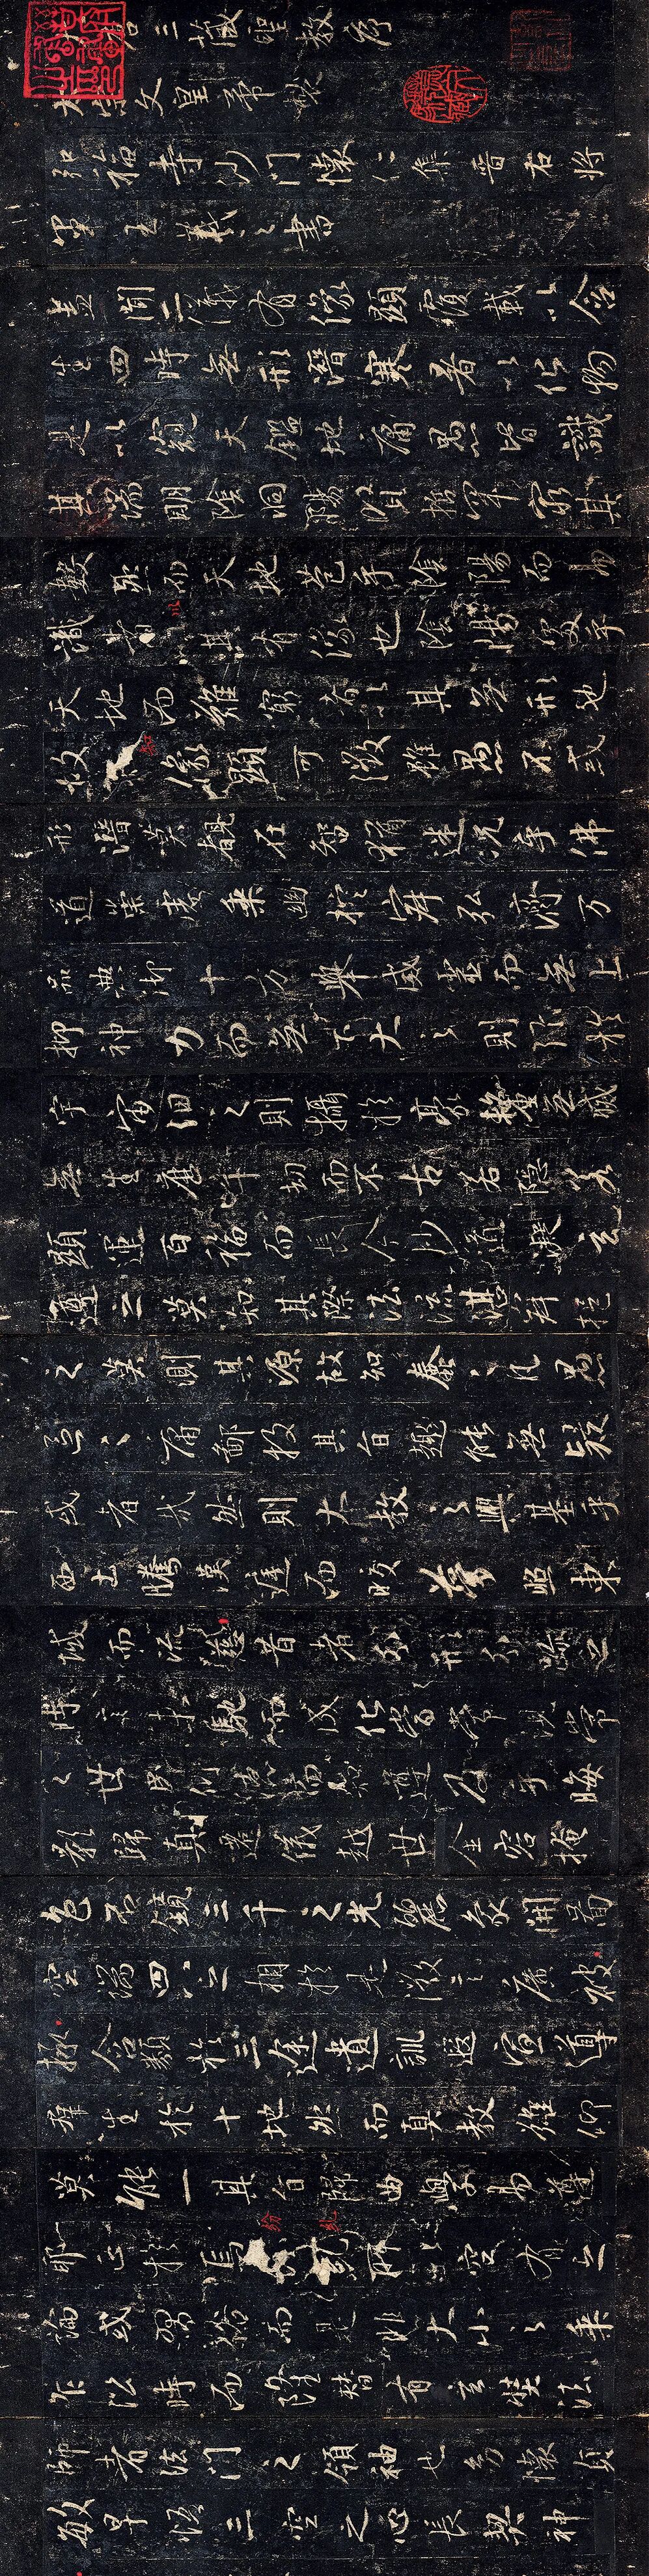 大唐三藏聖教序
太宗文皇帝製
弘福寺沙門懷仁集晉右將
軍王羲之書
蓋聞二儀有像顯覆載以含
生四時無形潛寒暑以化物
是以窺天鑑地庸愚皆識
其端明陰洞陽賢哲罕窮其
數然而天地苞乎陰陽而易
識者以其有像也陰陽處乎
天地而難窮者以其無形也
故知像顯可徵雖愚不惑
形潛莫覩在智猶迷況乎佛
道崇虛乘幽控寂弘濟万
品典御十方舉威靈而無上
抑神力而無下大之則彌於
宇宙細之則攝於毫釐無滅
無生歷千劫而不古若隱若
顯運百福而長今妙道凝玄
遵之莫知其際法流湛寂挹
之莫測其源故知蠢蠢凡愚
區區庸鄙投其旨趣能無疑
或者哉然則大教之興基乎
西土騰漢庭而皎夢照東
域而流慈昔者分形分跡之
時言未馳而成化當常現常
之世民仰德而知遵及乎晦
影歸真遷儀越世金容掩
色不鏡三千之光麗象開圖
空端四八之相於是微言廣被
拯含類於三途遺訓遐宣導
群生於十地然而真教難仰
莫能一其旨歸曲學易遵
耶正於焉紛糺所以空有之
論或習俗而是非大小之乘
乍沿時而隆替有玄奘法
師者法門之領袖也幼懷貞
敏早悟三空之心長契神